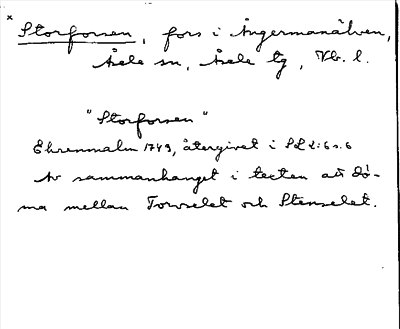 x Storforsen, fors i Ångermanälven,
Åsele sn, Åsele tg, Vb. l.
"Storforsen"
Ehrenmalm 1743, återgivet i SL 2:6 s.6
Av sammanhanget i texten att dö-
ma mellan Torvselet och Stenselet.